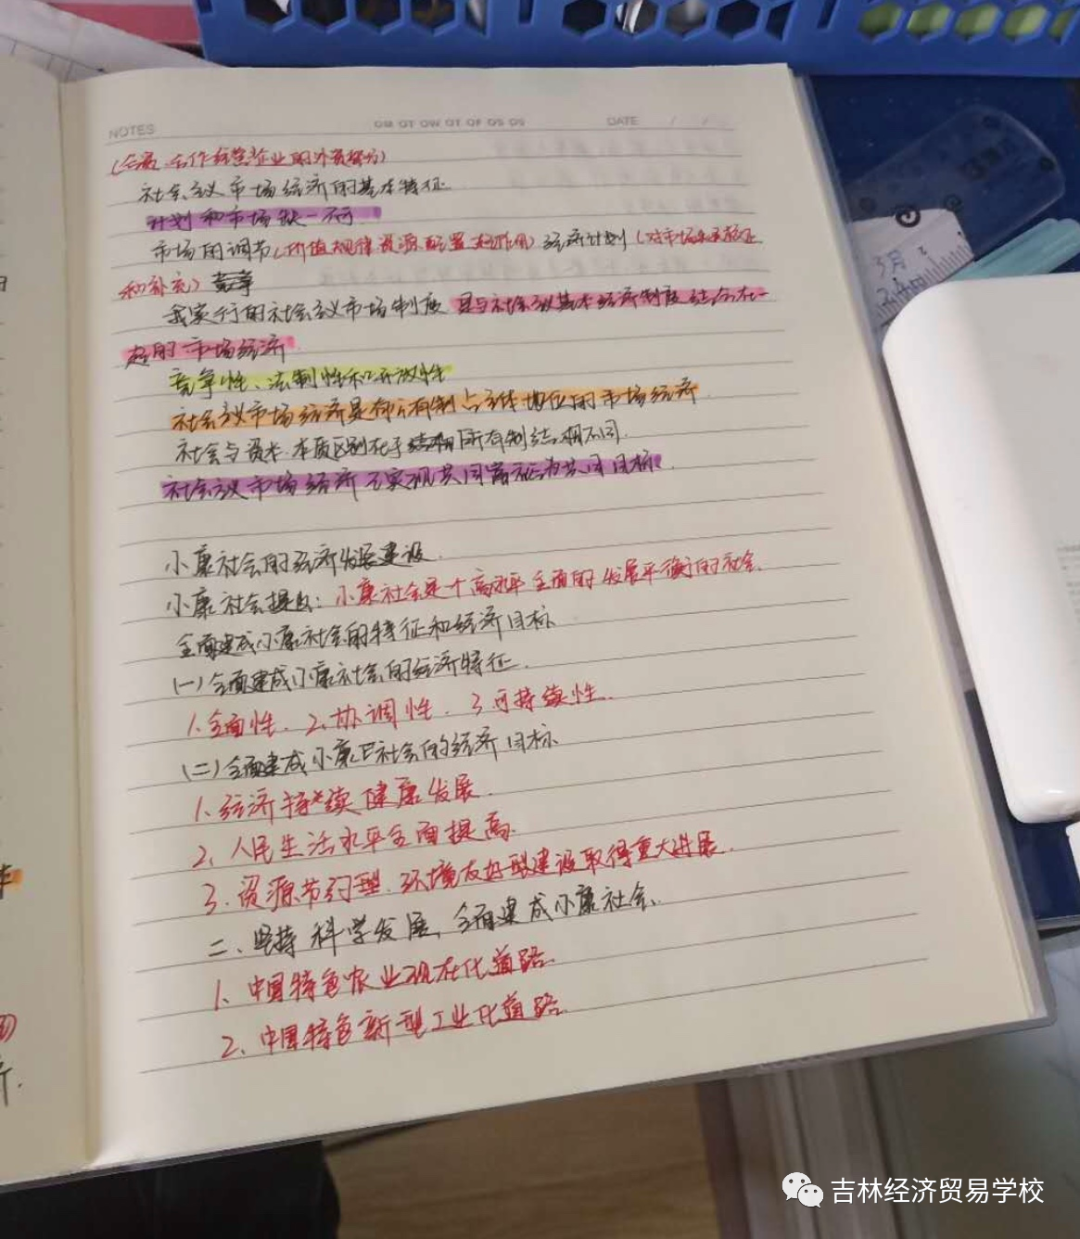 NOTES
OM OT OW OT OF OS OS
DATE / /
(合资、合作经营企业的外资部分)
社会主义市场经济的基本特征
计划和市场缺一不可
市场的调节(价值规律资源配置起作用) 经济计划(对市场
和补充)
我实行的社会主义市场制度 是与社会主义基本经济制度结合在一
起的市场经济
竞争性、法制性和开放性
社会主义市场经济是 公有制占主体地位的市场经济
社会与资本.本质区别在于 所有制结构不同.
社会主义市场经济 实现共同富裕为共同目标.
小康社会的经济发展建设.
小康社会提出:小康社会是个高水平全面的发展平衡的社会.
全面建成小康社会的特征和经济目标
(一)全面建成小康社会的经济特征.
1.全面性. 2.协调性. 3.可持续性.
(二)全面建成小康 社会的经济目标
1.经济持续健康发展.
2.人民生活水平全面提高.
3.资源节约型.环境友好型建设取得重大进展.
二、坚持科学发展,全面建成小康社会.
1、中国特色农业现在化道路.
2、中国特色新型工业化道路.
3月
吉林经济贸易学校